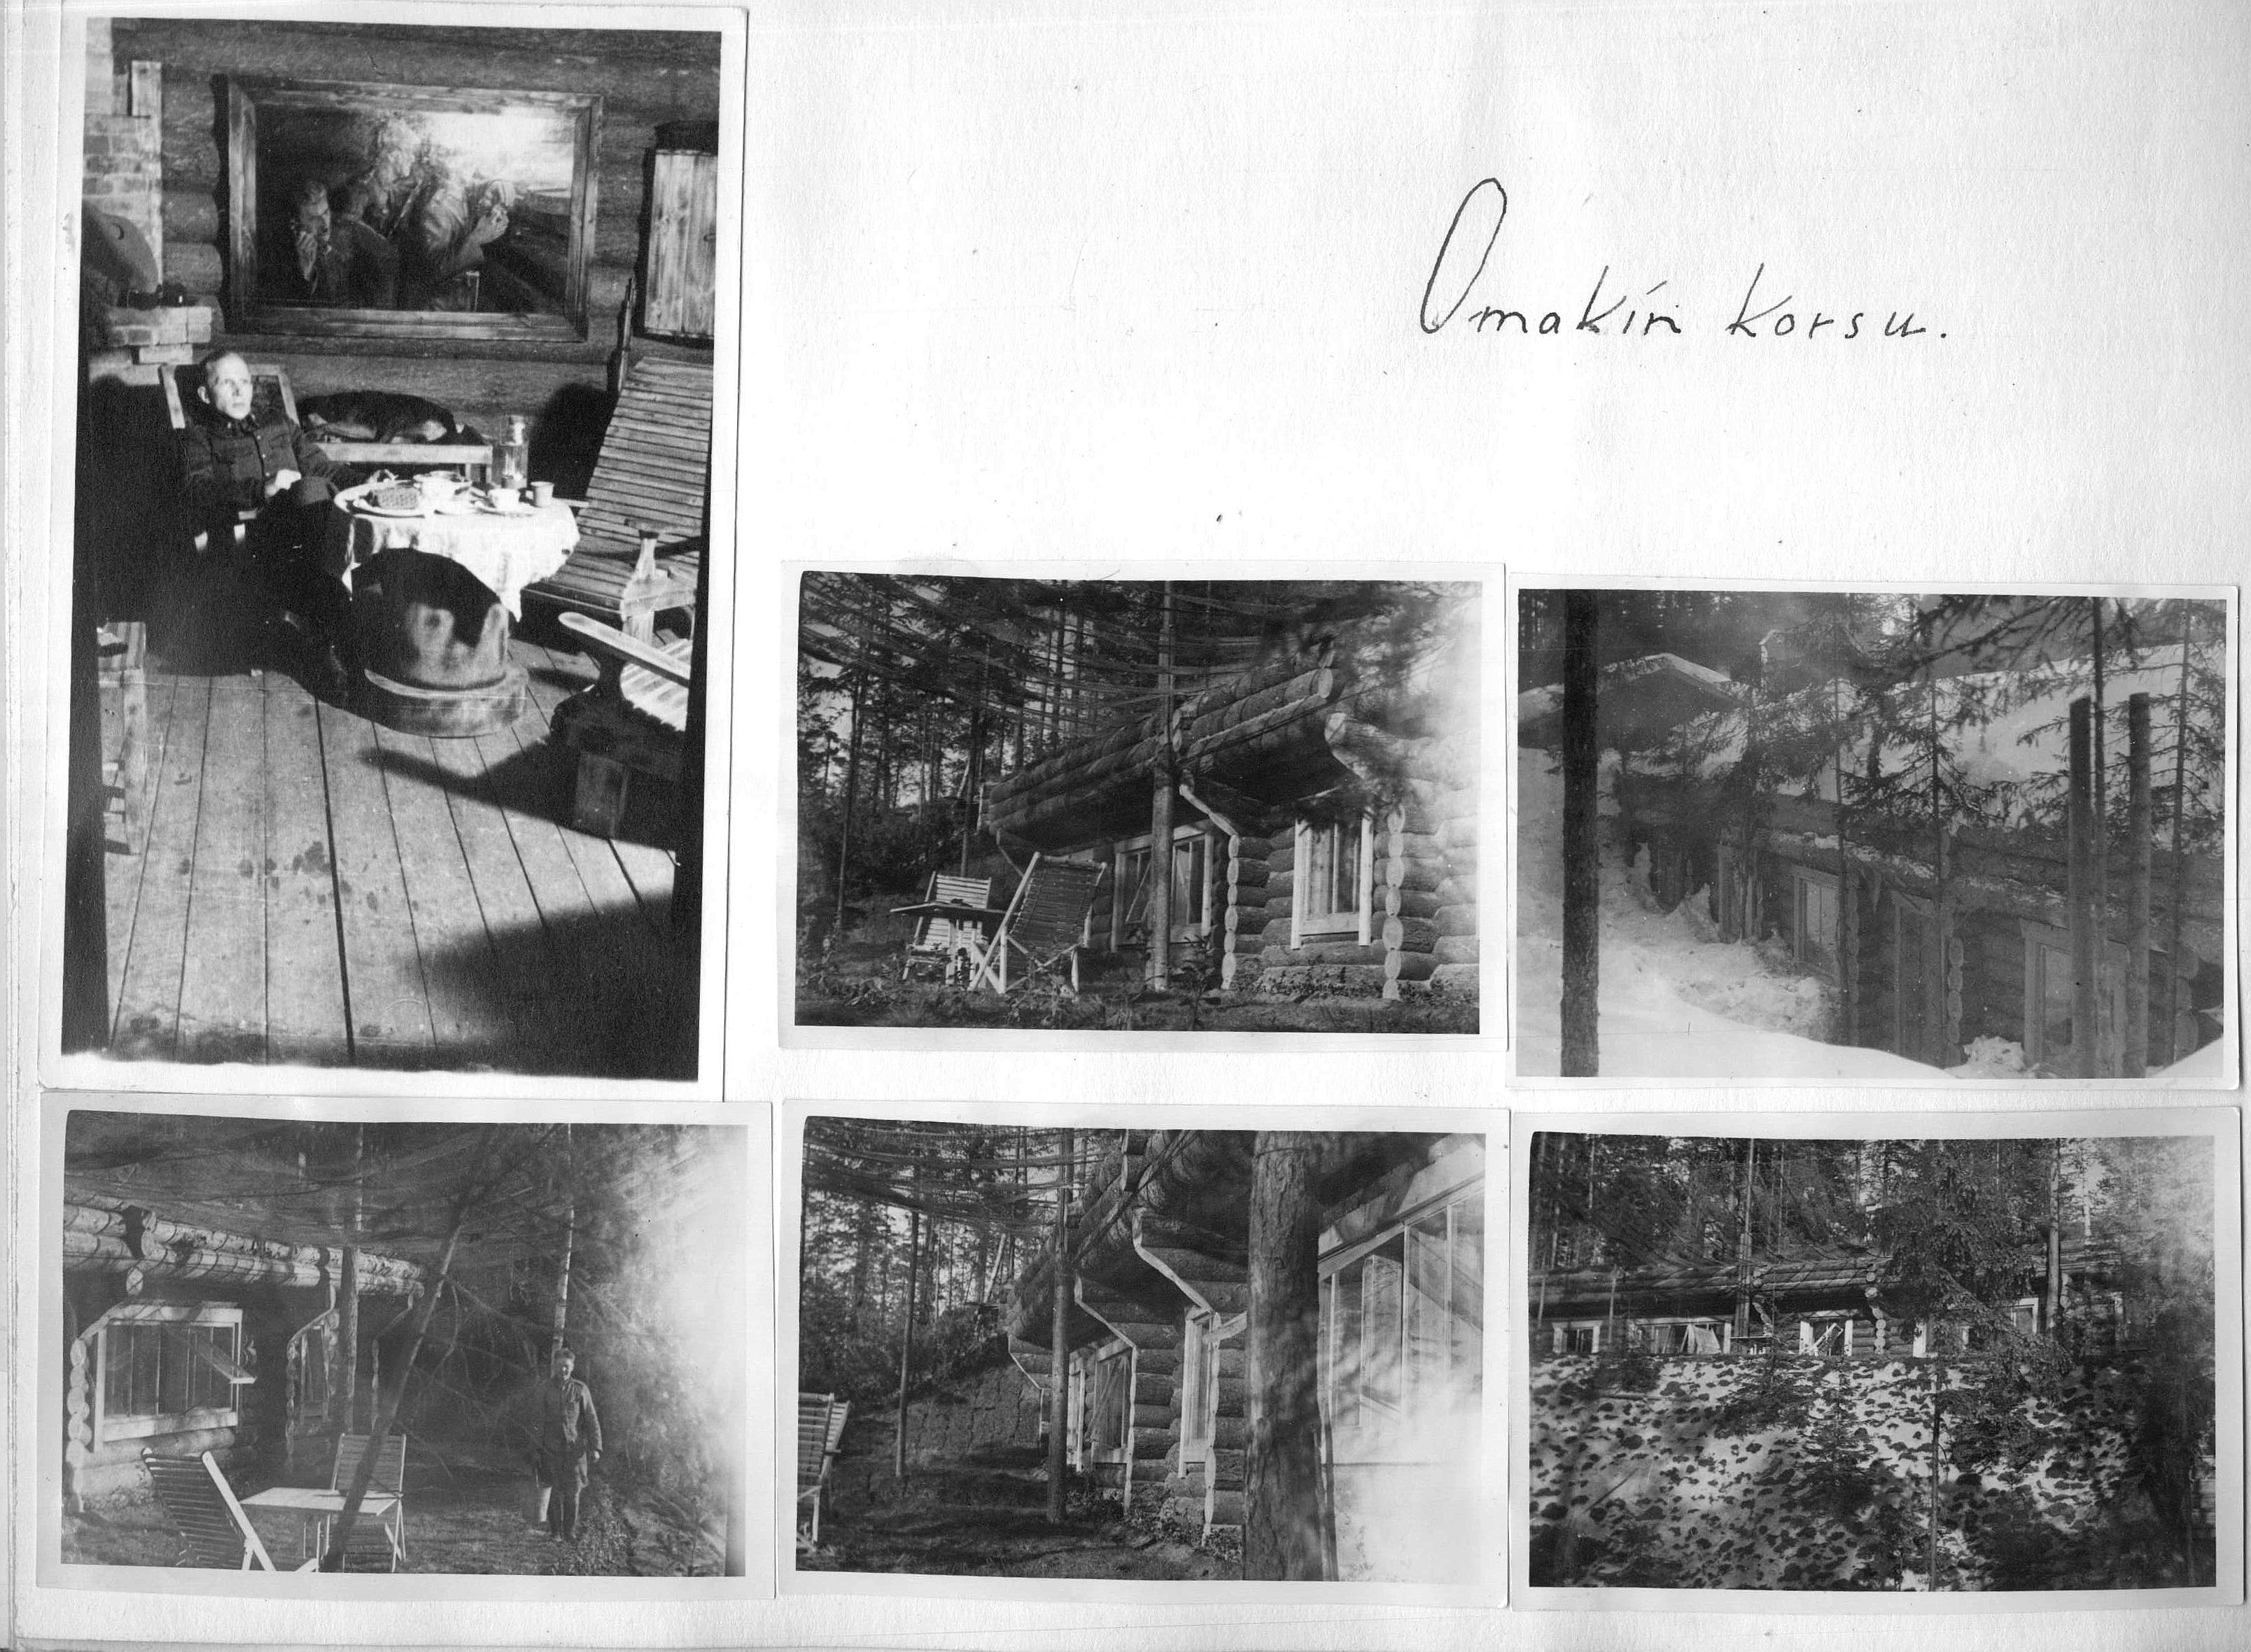 Omakin korsu.